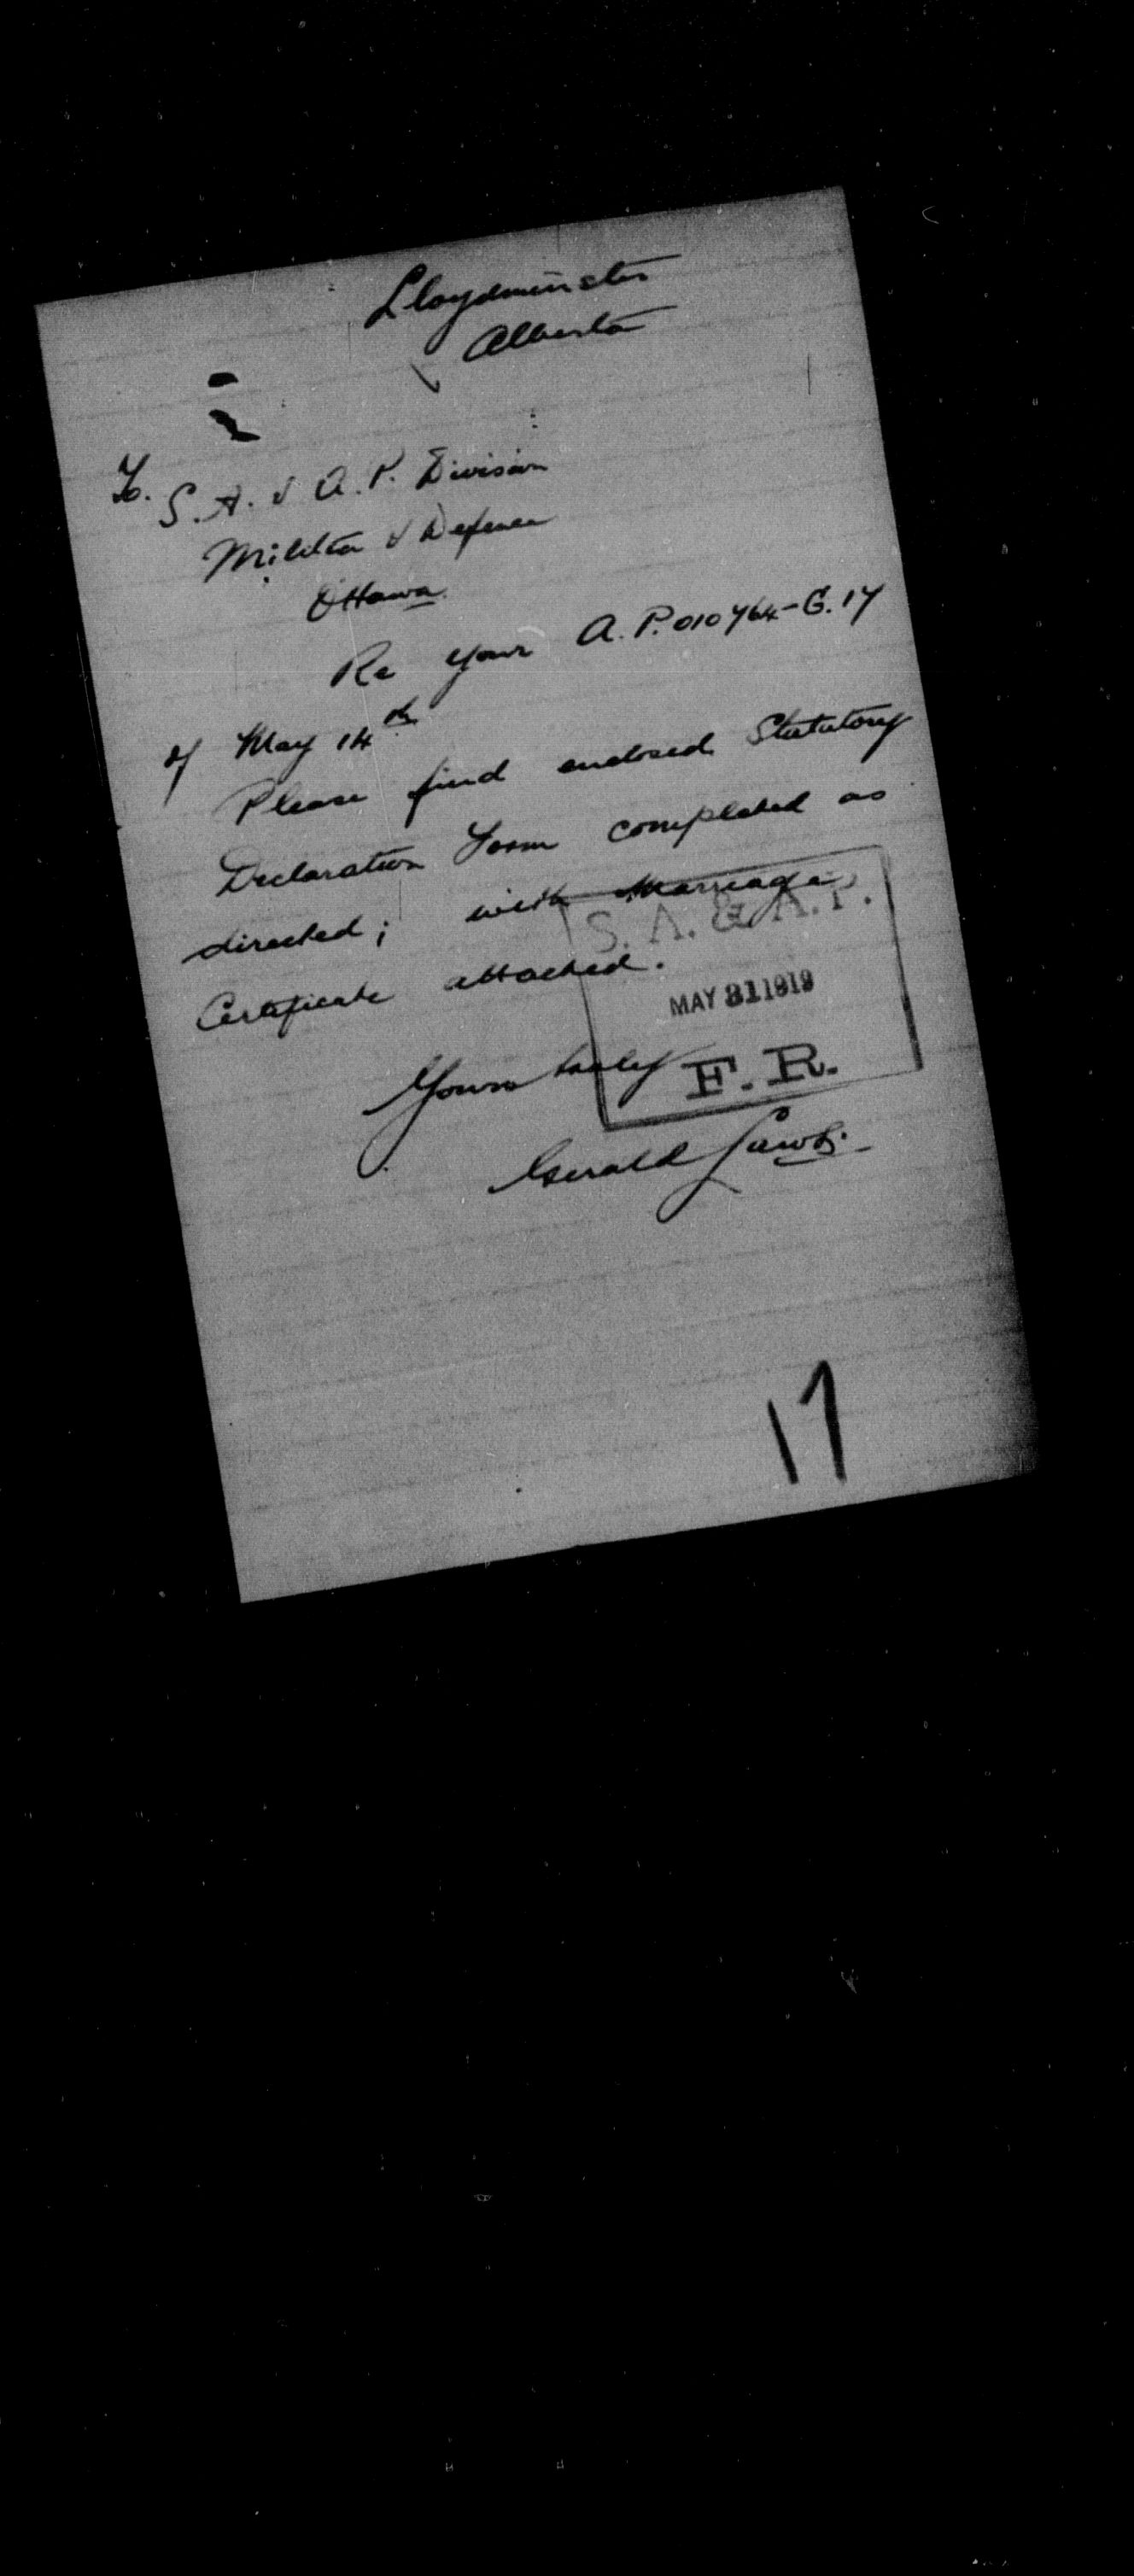 Lloydminster
Alberta
To.
S. A. & A. P. Division
Militia & Defence
Ottawa.
Re your A. P. 010764-G. 17
of May 14th.
Please find enclosed Statutory
Declaration Form completed as
directed; with Marriage
Certificate attached.
S. A. & A. P.
MAY 31 1919
F. R.
Yours truly
Gerald
17